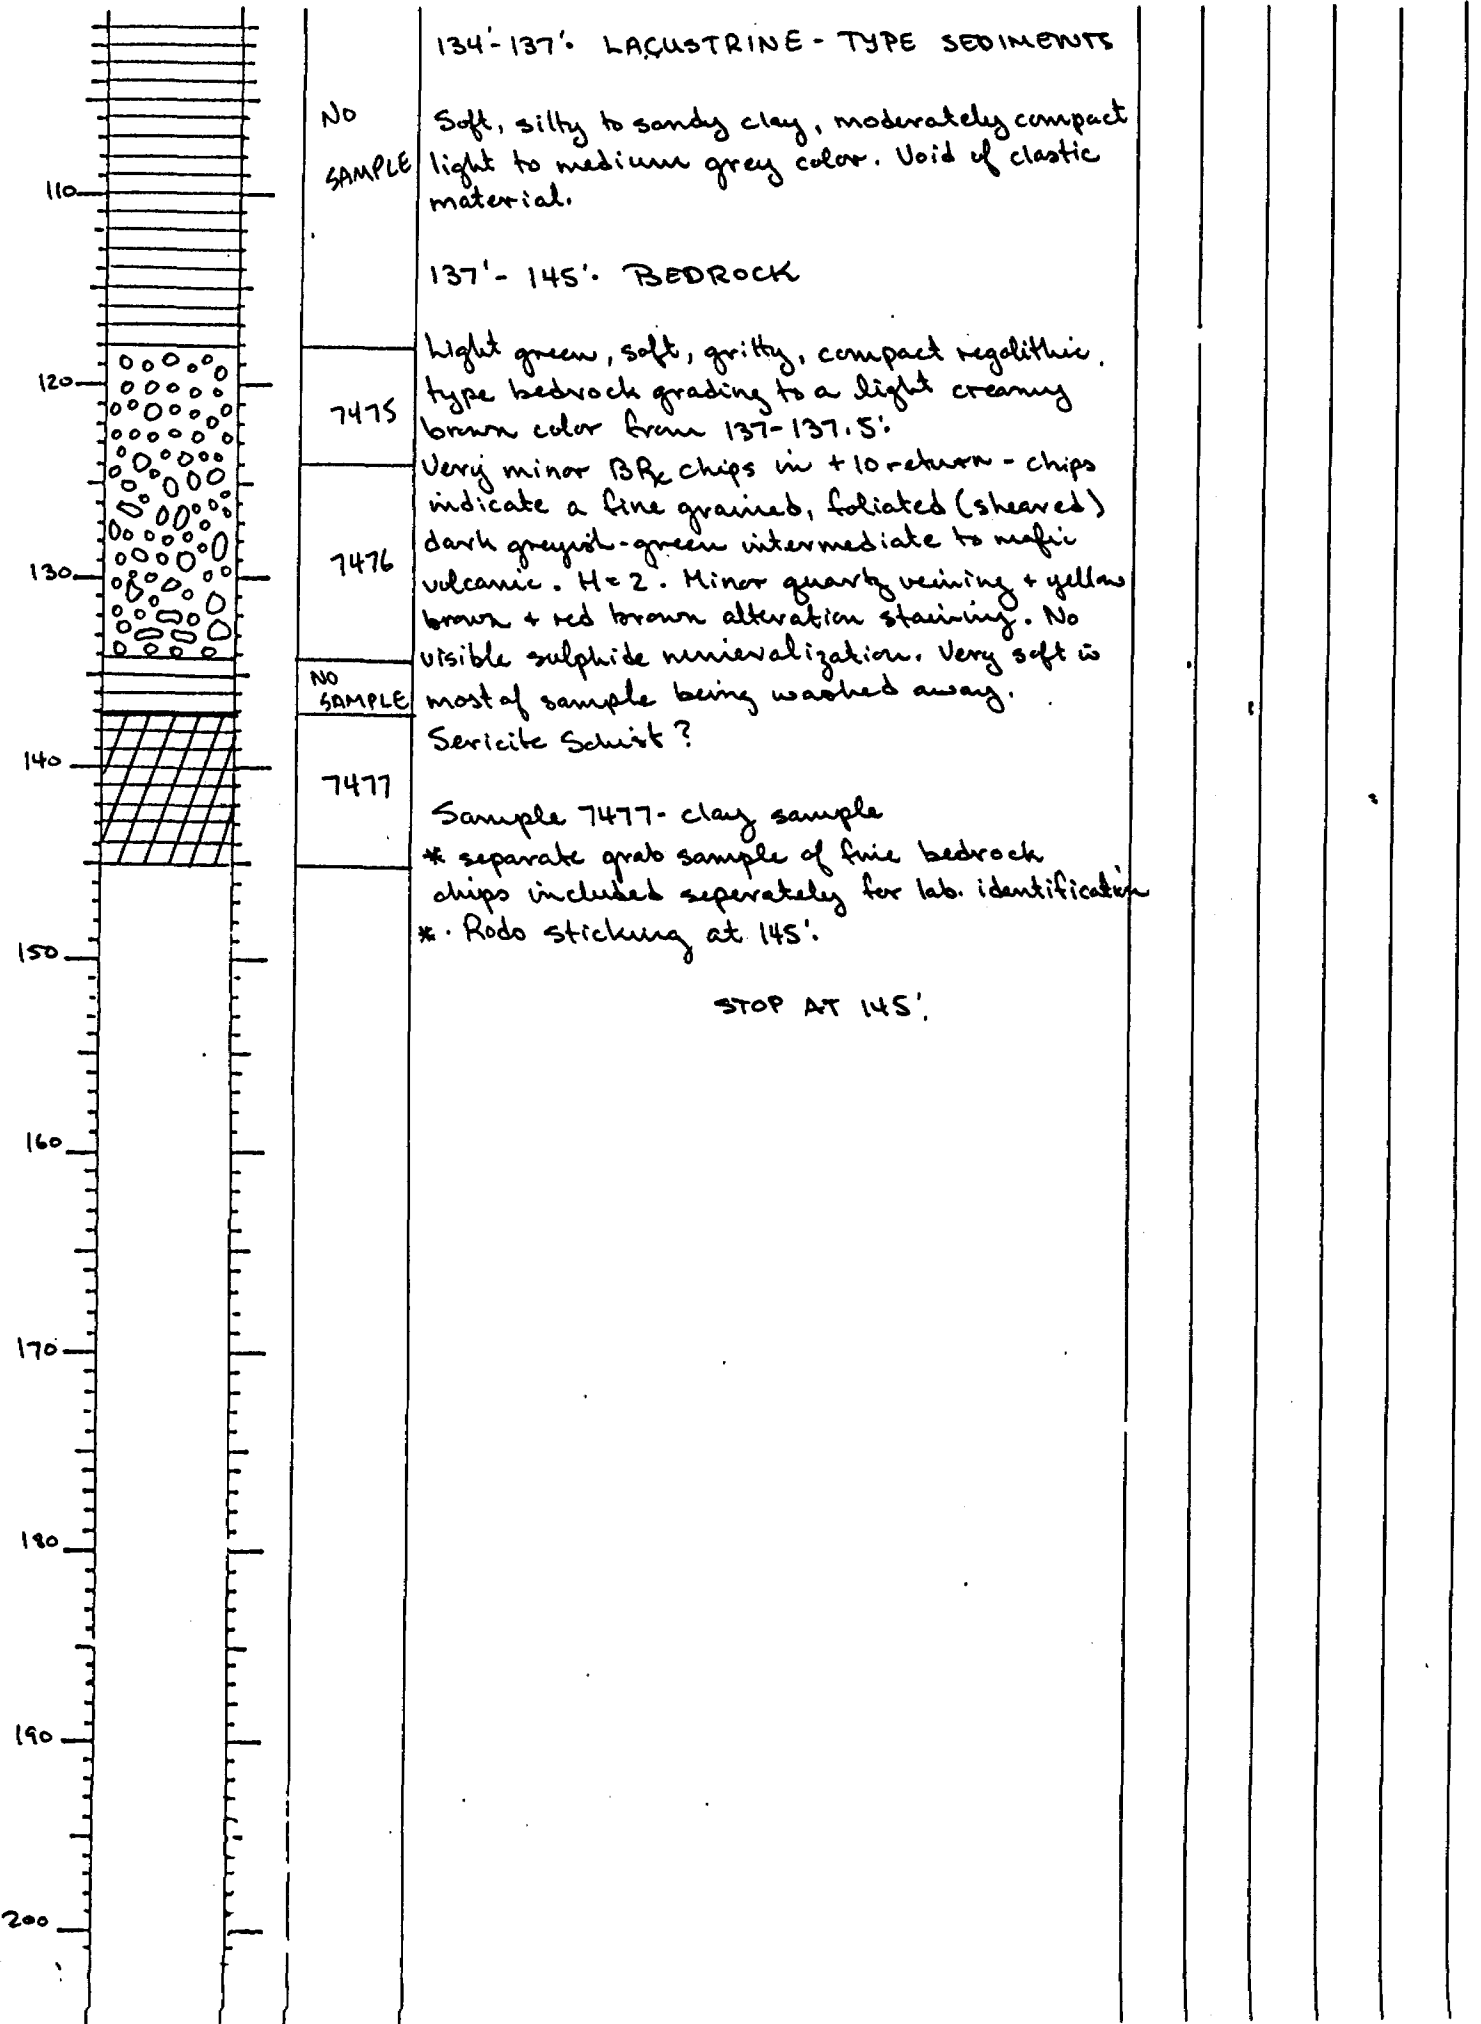 134'-137'. LACUSTRINE - TYPE SEDIMENTS
NO
SAMPLE
Soft, silty to sandy clay, moderately compact
light to medium grey color. Void of clastic
material.
110
137'- 145'. BEDROCK
Light green, soft, gritty, compact regolithic.
type bedrock grading to a light creamy
brown color from 137-137.5'.
120
7475
Very minor BRx chips in +10 return - chips
indicate a fine grained, foliated (sheared)
dark greyish-green intermediate to mafic
volcanic. H=2. Minor quartz veining + yellow
brown + red brown alteration staining. No
visible sulphide minieralization. Very soft
most of sample being washed away.
Sericite Schist?
7476
130
NO
SAMPLE
140
7477
Sample 7477- clay sample
* separate grab sample of fine bedrock
chips included seperately for lab. identification
* . Rods sticking at 145'.
150
STOP AT 145'.
160
170
180
190
200